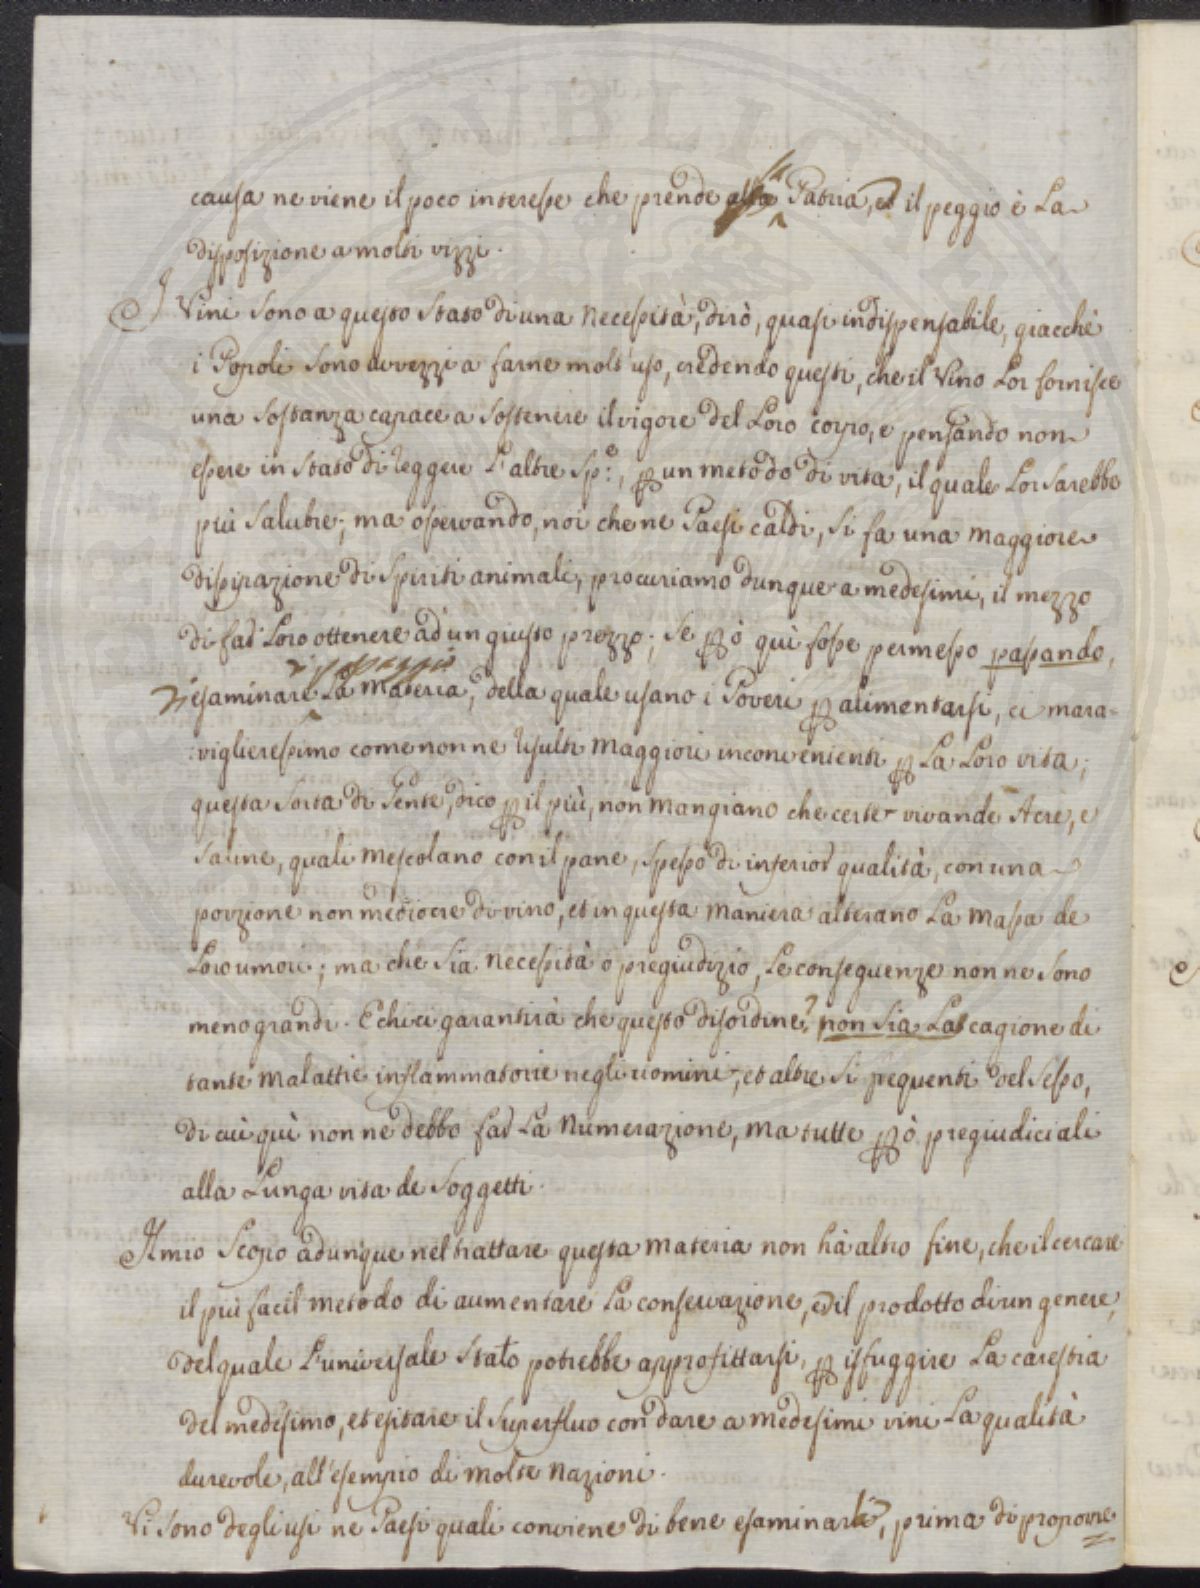 causa ne viene il poco interesse che prende alla Patria, ed il peggio è La
disposizione a molti vizzi.
I Vini sono a questo stato di una necessità, dirò, quasi indispensabile, giacchè
i Popoli sono avvezzi a farne molt'uso, credendo questi, che il Vino Lor fornisce
una sostanza capace a sostenere il vigore del Loro corpo, e pensando non
essere in stato di reggere L'altre Sp:e, p un metodo di vita, il quale Lor sarebbe
più salubre; ma osservando, noi che ne Paesi caldi, si fa una maggiore
dispirazione di Spiriti animali, procuriamo dunque a medesimi, il mezzo
di far Loro ottenere ad un giusto prezzo; se pò quì fosse permesso passando,
esaminare La materia, della quale usano i Poveri p alimentarsi, ci mara=
:viglieressimo come non ne risulti maggiori inconvenienti p La Loro vita;
questa sorta di Gente, dico p il più, non mangiano che certe vivande Acre, e
saline, quali mescolano con il pane, spesso di inferior qualità, con una
porzione non mediocre di vino, et in questa maniera alterano La massa de
Loro umori; ma che sia necessità o pregiudizio, Le conseguenze non ne sono
meno grandi. E chi ci garantirà che questo disordine, non sia La cagione di
tante malattie inflammatorie negli uomini, et altre si frequenti del Sesso,
di cui quì non ne debbo far La numerazione, ma tutte pò pregiudiciali
alla Lunga vita de Soggetti.
Il mio Scopo adunque nel trattare questa materia non hà altro fine, che il cercare
il più facil metodo di aumentare La conservazione, ed il prodotto di un genere,
del quale L'universale stato potrebbe approfittarsi, p isfuggire La carestia
del medesimo, et esitare il Superfluo con dare a medesimi vini La qualità
durevole, all'esempio di molte nazioni.
Vi sono degli usi ne Paesi quali conviene di bene esaminarli, prima di proporre